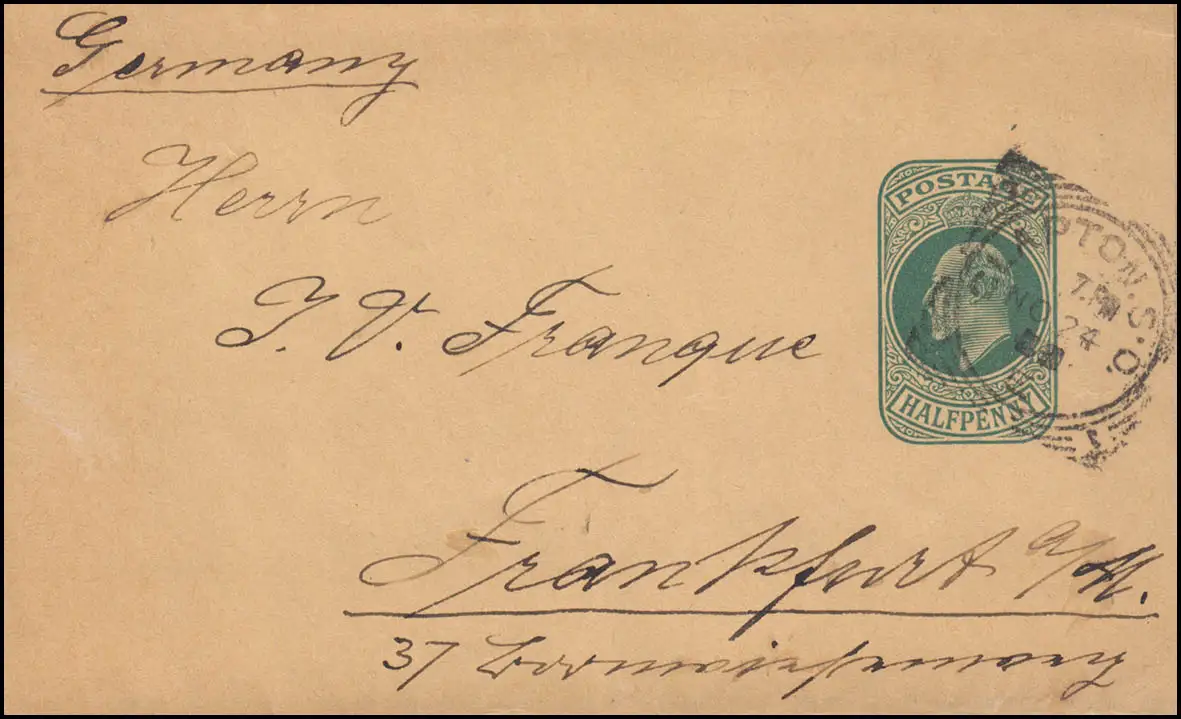 Germany
Herrn
J. V. Franque
Frankfurt a/M.
37
POSTAGE
HALFPENNY
PTON. S. O.
7. PM
NO 24